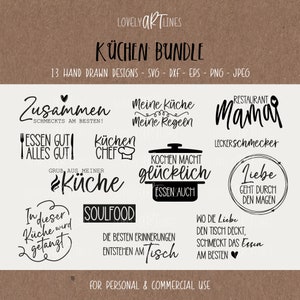 LOVELY ARTLINES
KÜCHEN BUNDLE
13 HAND DRAWN DESIGNS - SVG - DXF - EPS - PNG - JPEG
Zusammen
SCHMECKTS AM BESTEN!
Meine Küche
Meine Regeln
RESTAURANT
Mama
ESSEN GUT
ALLES GUT
Küchen
CHEF
KOCHEN MACHT
glücklich
ESSEN AUCH
LECKERschmecker
GRUß AUS MEINER
Küche
Liebe
GEHT DURCH
DEN MAGEN
In dieser
Küche wird
getanzt
SOULFOOD
DIE BESTEN ERINNERUNGEN
ENTSTEHEN AM Tisch
WO DIE Liebe
DEN TISCH DECKT,
SCHMECKT DAS Essen
AM BESTEN
FOR PERSONAL & COMMERCIAL USE